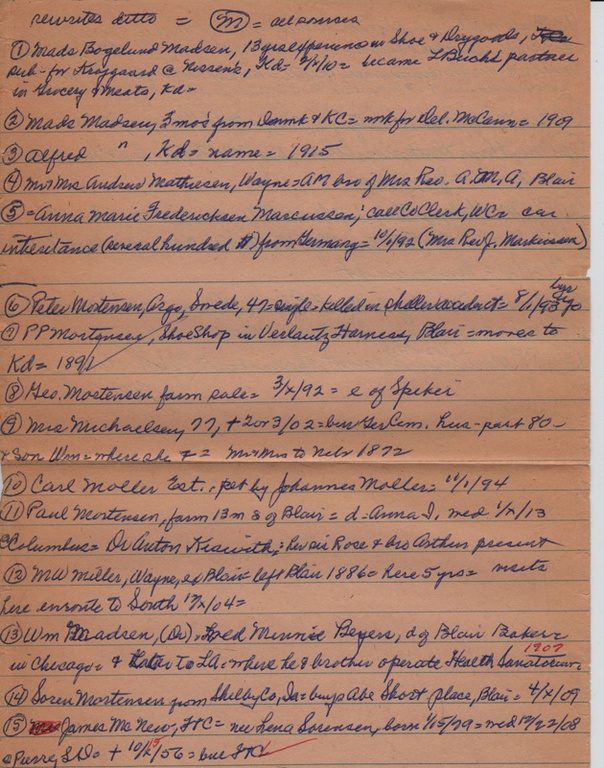 rewrites ditto = (M) = all Danes
① Mads Bogelund Madsen, 13 yrs experience in Shoe & Drygoods,
sub-for Kroggaard @ Nissen's, Kd = 7/1/10 = became partner
in Grocery & Meats, Kd =
② Mads Madsen, 3 mos from Danmk & KC = wrk for Del. McCann = 1909
③ Alfred " , Kd = name = 1915
④ Mr & Mrs Andrew Mathiesen, Wayne = AM bro of Mrs Rev. A.M.A, Blair
⑤ = Anna Marie Fredericksen Marcussen; call Co Clerk, WC =
inheritance (several hundred $) from Germany = 10/6/92 (Mrs Rev J. Markussen)
⑥ Peter Mortensen, Argo, Swede, 47 = wife = killed in accident = 8/1/93
⑦ PP Mortensen, Shoe Shop in Harness, Blair = moves to
Kd = 1891
⑧ Geo. Mortensen farm sale = 3/x/92 = e of Spiker
⑨ Mrs Michaelsen, 77, + 2 or 3/02 = bur Ger Cem. hus = past 80 -
& Son Wm = where she + = Mr & Mrs to Nebr 1872
⑩ Carl Moller Est. = pet by Johannes Moller = 11/1/94
⑪ Paul Mortensen, farm 13 m s of Blair = d = Anna I, wed 1/x/13
@ Columbus = Dr Anton ; her sis Rose & bro Arthur present
⑫ MW Miller, Wayne, ex Blair = left Blair 1886 = here 5 yrs = visits
here enroute to South 17/x/04 =
⑬ Wm Madsen, (Dr) = wed Minnie Beyers, d of Blair Baker =
in Chicago = & later to LA = where he & brother operate Health Sanatorium = 1907
⑭ Soren Mortensen from Shelby Co, Ia = buys Abe Short place, Blair = 4/x/09
⑮ James McNew, FtC = nee Lena Sorensen, born 1/15/79 = wed 12/22/08
@ Pierre, S.D. = + 10/15/56 = bur FtC